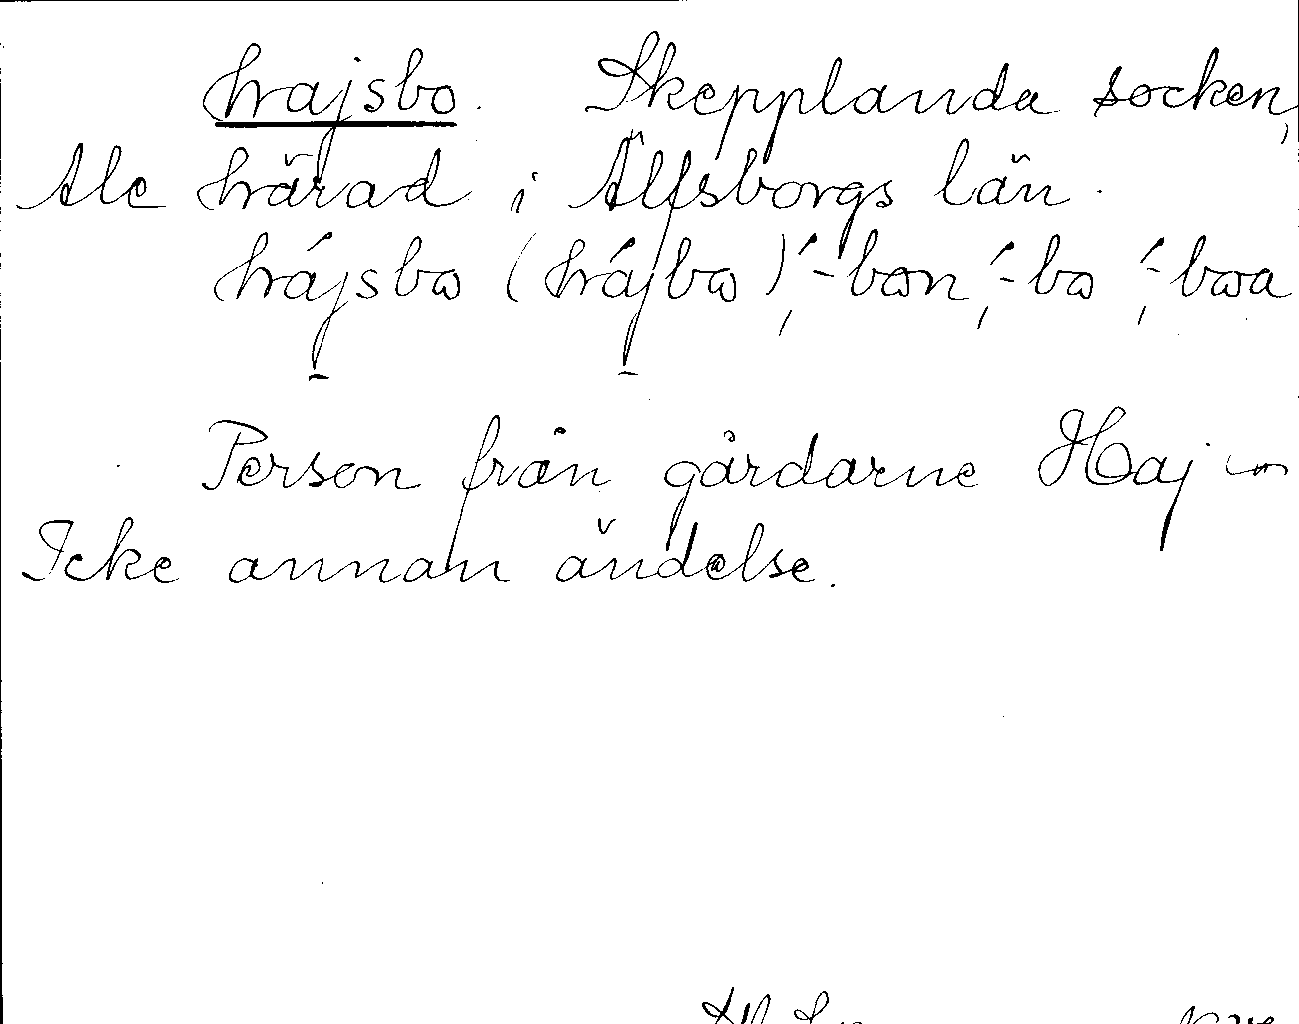 hajsbo. Skepplanda socken,
Ale härad i Älfsborgs län.
hájsbω (hájbω), ́-bωn, ́-bω, ́-bωa
Person från gårdarne Haj ~
Icke annan ändelse.